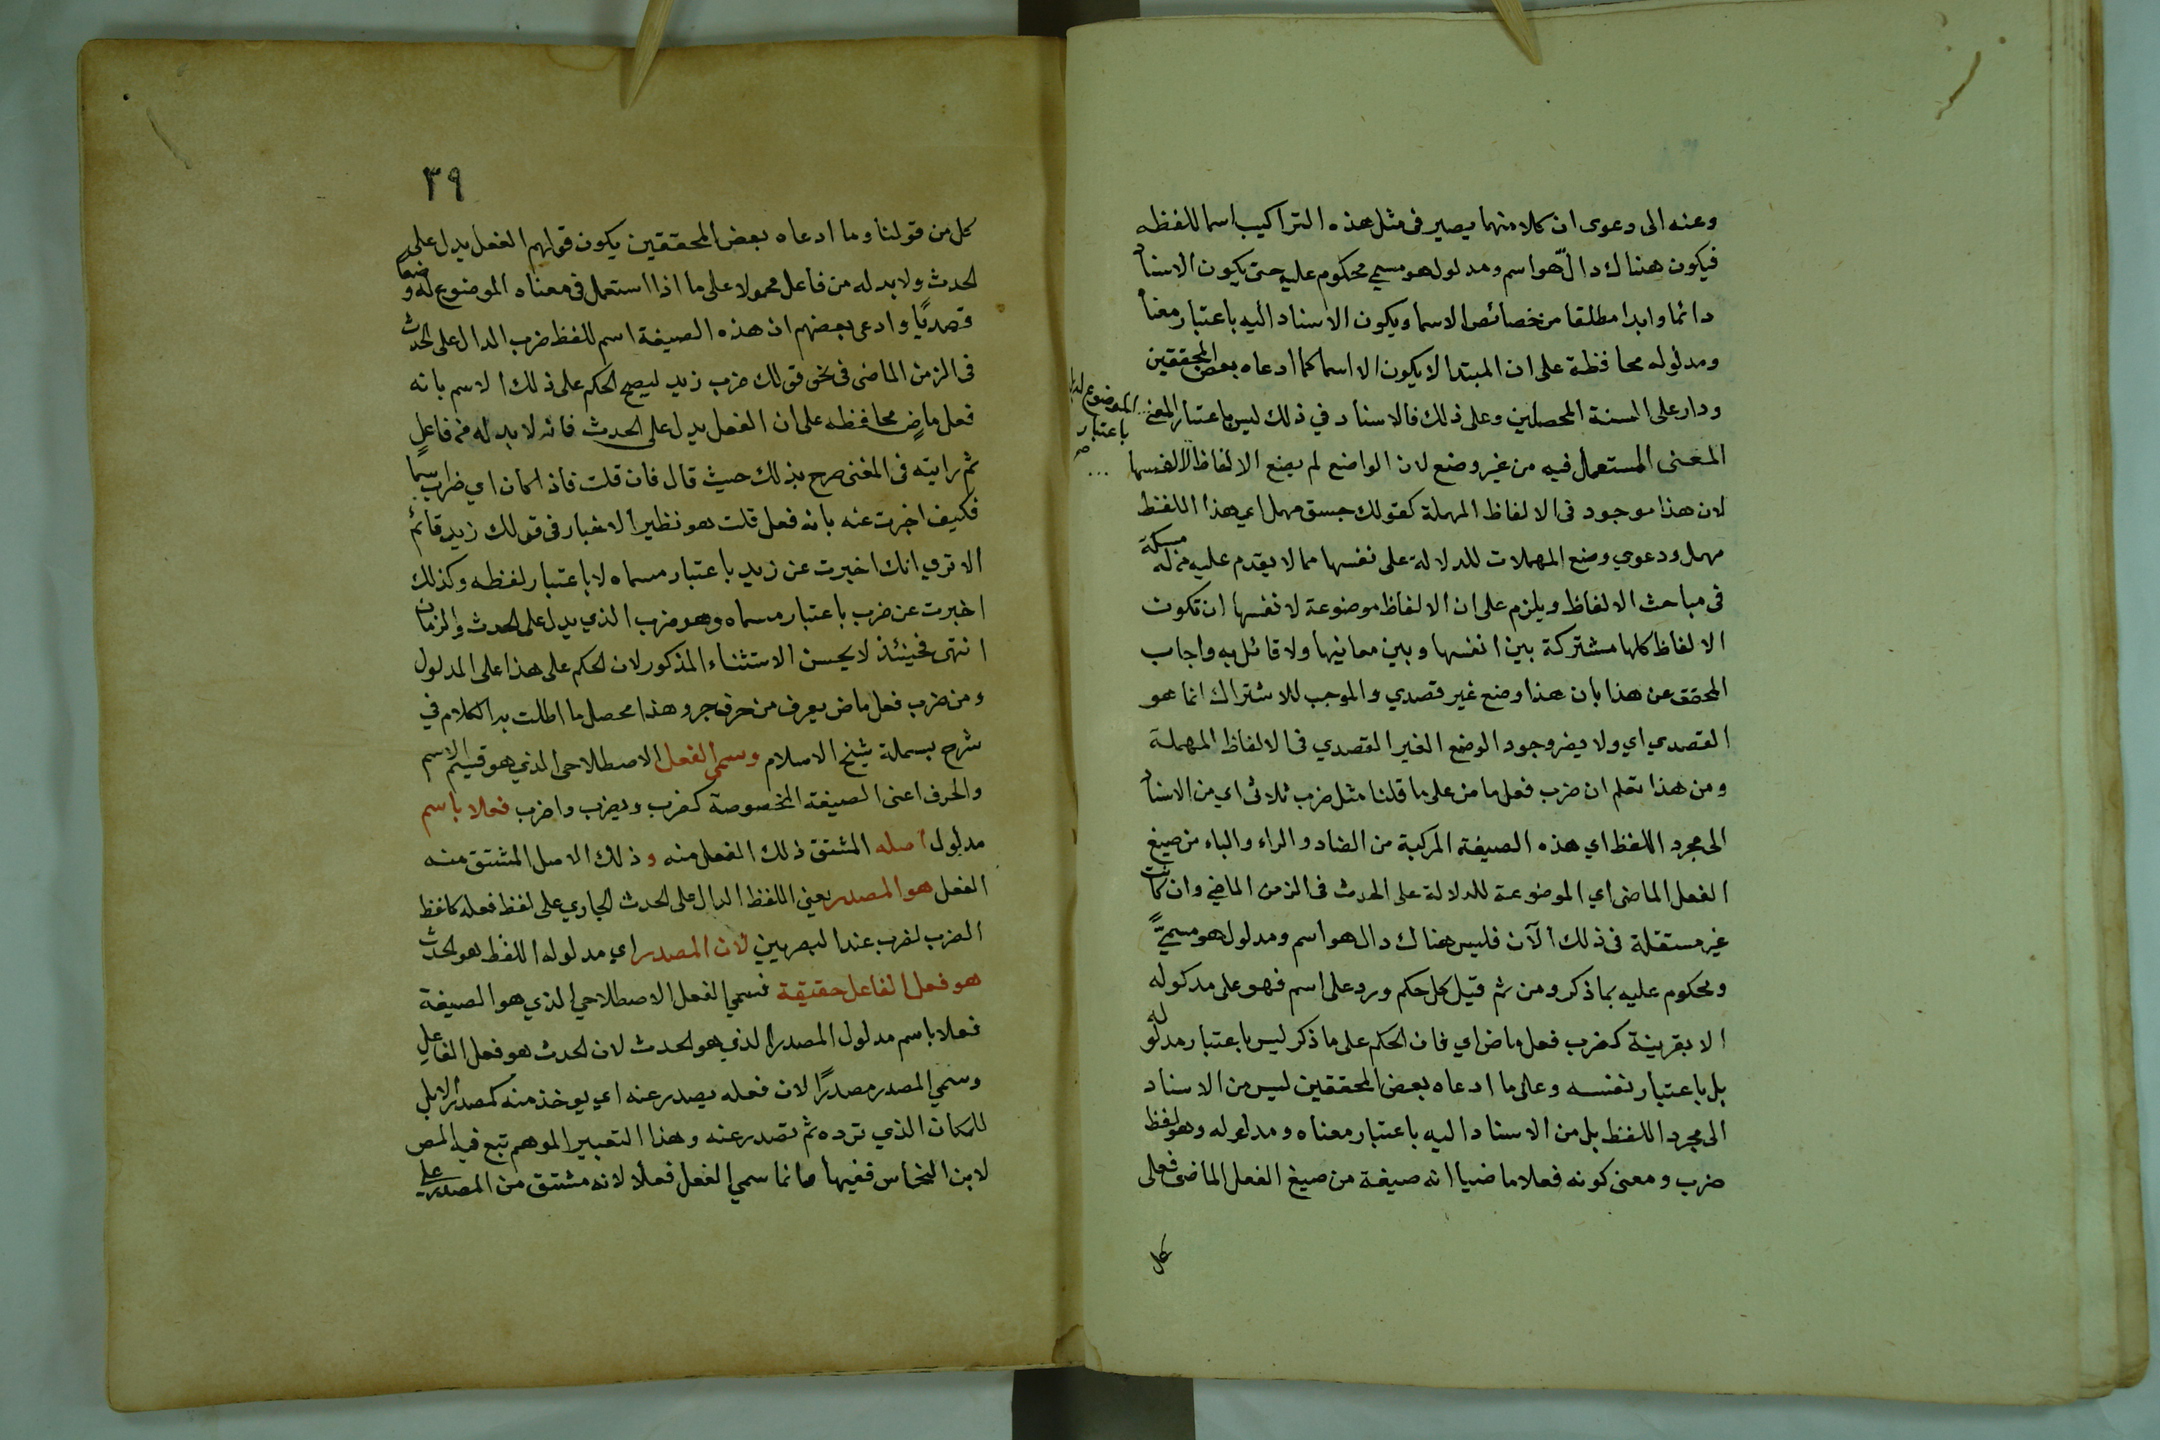 وعنه الى دعوى ان كلا منهما يصير فى مثل هذه التراكيب اسما للفظه
فيكون هناك دالّ هو اسم ومدلول هو مسمى محكوم عليه حتى يكون الاسناد
دائما وابدا مطلقا من خصائص الاسما ويكون الاسناد اليه باعتبار معناه
ومدلوله محافظة على ان المبتدا لا يكون الا اسما كما ادعاه بعض المحققين
ودار على السنة المحصلين وعلى ذلك فالاسناد في ذلك ليس باعتبار المعنى
الموضوع له بل
باعتبار
المعنى المستعمل فيه من غير وضع لان الواضع لم يضع الالفاظ لانفسها
لان هذا موجود فى الالفاظ المهملة كقولك جسق مهمل اي هذا اللفظ
مهمل ودعوي وضع المهملات للدلالة على نفسها مما لا يقدم عليه من له مسكة
فى مباحث الالفاظ ويلزم على ان الالفاظ موضوعة لانفسها ان تكون
الالفاظ كلها مشتركة بين انفسها وبين معانيها ولا قائل به واجاب
المحقق عن هذا بان هذا وضع غير قصدي والموجب للاشتراك انما هو
القصدي اي ولا يضر وجود الوضع الغير القصدي فى الالفاظ المهملة
ومن هذا تعلم ان ضرب فعل ماض على ما قلنا مثل ضرب ثلاثى اي من الاسناد
الى مجرد اللفظ اي هذه الصيغة المركبة من الضاد والراء والباء من صيغ
الفعل الماضى اي الموضوعة للدلالة على الحدث فى الزمن الماضي وان كانت
غير مستقلة فى ذلك الآن فليس هناك دال هو اسم ومدلول هو مسمىً
ومحكوم عليه بما ذكر ومن ثم قيل كل حكم ورد على اسم فهو على مدلوله
الا بقرينة كضرب فعل ماض اي فان الحكم على ما ذكر ليس باعتبار مدلوله
بل باعتبار نفسه وعلى ما ادعاه بعض المحققين ليس من الاسناد
الى مجرد اللفظ بل من الاسناد اليه باعتبار معناه ومدلوله وهو لفظ
ضرب ومعنى كونه فعلا ماضيا انه صيغة من صيغ الفعل الماضى فعلى
كل
٣٩
كل من قولنا وما ادعاه بعض المحققين يكون قولهم الفعل يدل على
الحدث ولا بد له من فاعل محمولا على ما اذا استعمل فى معناه الموضوع له وضعا
قصديًا وادعى بعضهم ان هذه الصيغة اسم للفظ ضرب الدال على الحدث
فى الزمن الماضى فى نحو قولك ضرب زيد ليصح الحكم على ذلك الاسم بانه
فعل ماضٍ محافظه على ان الفعل يدل على الحدث فانه لا بد له من فاعل
ثم رايته فى المغنى صرح بذلك حيث قال فان قلت فاذا كان اي ضرب اسما
فكيف اخبرت عنه بانه فعل قلت هو نظير الاخبار فى قولك زيد قائم
الا ترى انك اخبرت عن زيد باعتبار مسماه لا باعتبار لفظه وكذلك
اخبرت عن ضرب باعتبار مسماه وهو ضرب الذي يدل على الحدث والزمان
انتهى فحينئذ لا يحسن الاستثناء المذكور لان الحكم على هذا على المدلول
ومن ضرب فعل ماض يعرف من حرف جر وهذا محصل ما اطلت به الكلام في
شرح بسملة شيخ الاسلام وسمى الفعل الاصطلاحى الذي هو قسيم الاسم
والحرف اعنى الصيغة المخصوصة كضرب ويضرب واضرب فعلا باسم
مدلول اصله المشتق ذلك الفعل منه وذلك الاصل المشتق منه
الفعل هو المصدر يعني اللفظ الدال على الحدث الجاري على لفظ فعله كلفظ
الضرب لضرب عند البصريين لان المصدر اي مدلوله اللفظ هو الحدث
هو فعل الفاعل حقيقة فسمي الفعل الاصطلاحى الذي هو الصيغة
فعلا باسم مدلول المصدر الذي هو الحدث لان الحدث هو فعل الفاعل
وسمي المصدر مصدرًا لان فعله يصدر عنه اي يوخذ منه كمصدر الابل
للمكان الذي ترده ثم تصدر عنه وهذا التعبير الموهم تبع فيه المص
لابن النحاس ففيها وانما سمي الفعل فعلا لانه مشتق من المصدر على